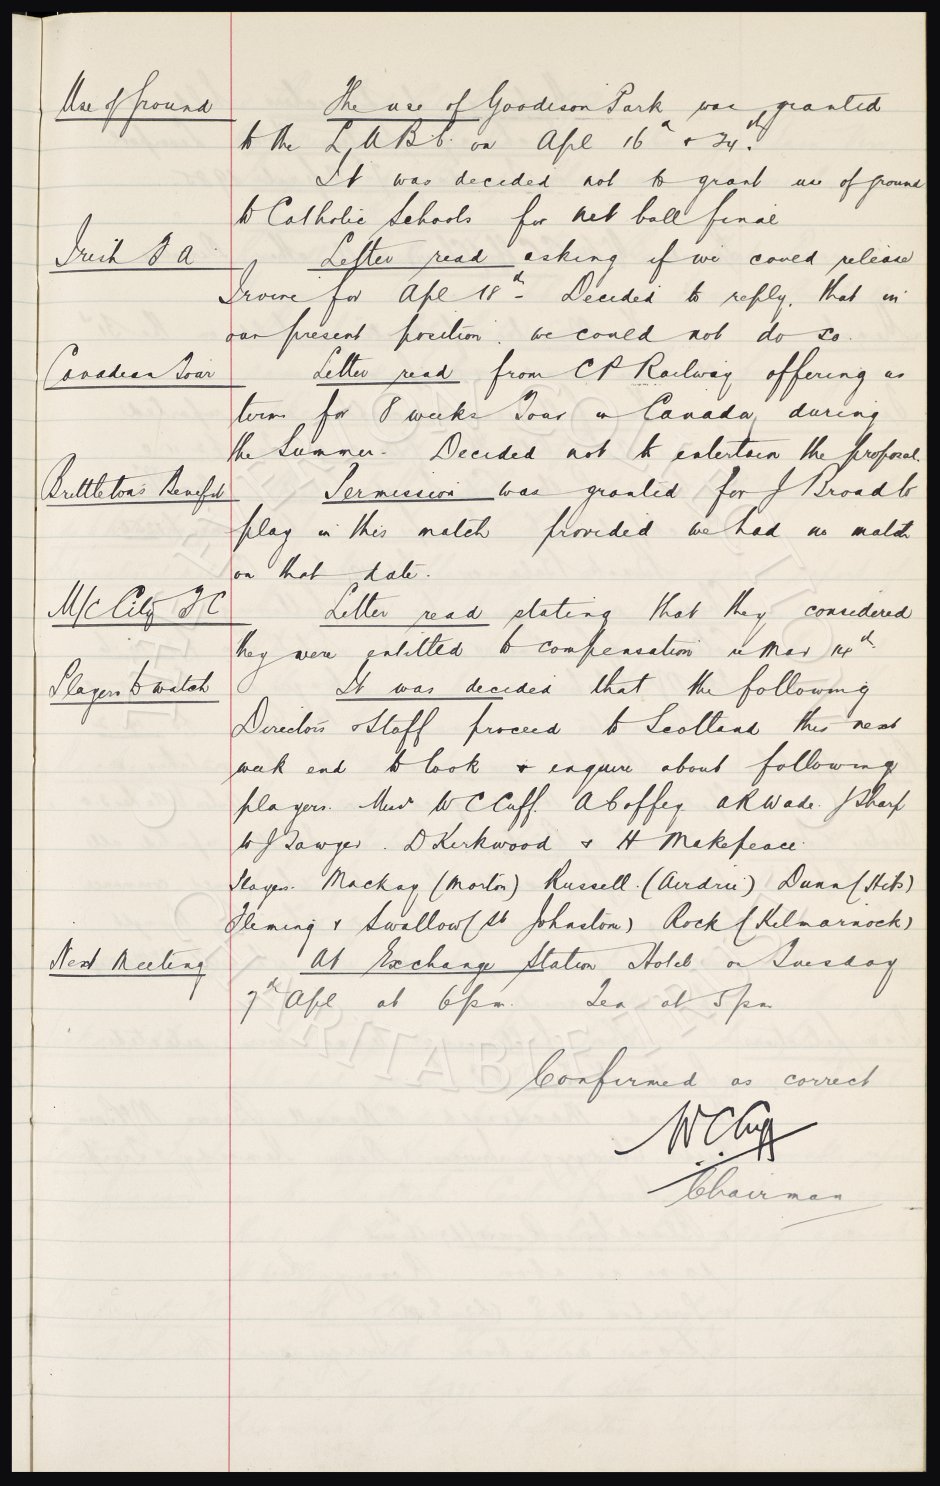 Use of Ground The use of Goodison Park was granted
to the L.U.B.C. on Apl 16th & 24th.
It was decided not to grant use of ground
to Catholic Schools for net ball final
Irish F A Letter read asking if we could release
Irvine for Apl 18th – Decided to reply, that in
our present position, we could not do so.
Canadian Tour Letter read from C P Railway offering us
terms for 8 weeks Tour in Canada during
the Summer. Decided not to entertain the proposal.
Brittleton's Benefit Permission was granted for J Broad to
play in this match provided we had no match
on that date.
M/c City F C Letter read stating that they considered
they were entitled to compensation re Mar 14th
Players to watch It was decided that the following
Directors & Staff proceed to Scotland this next
week end to look & enquire about following
players. Messrs W C Cuff. A Coffey A R Wade. J Sharp
W J Sawyer. D Kirkwood & H Makepeace.
Players. Mackay (Morton) Russell. (Airdrie) Dunn (Hibs)
Fleming & Swallow (St Johnston) Rock (Kilmarnock)
Next Meeting At Exchange Station Hotel on Tuesday
7th Apl at 6 pm. Tea at 5 pm
Confirmed as correct
W C Cuff
Chairman